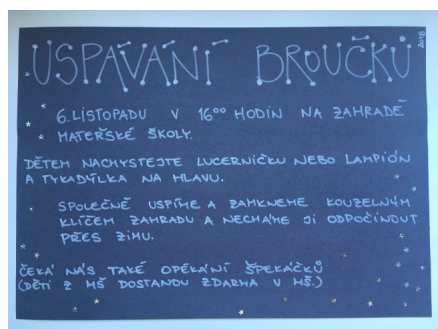 USPÁVÁNÍ BROUČKŮ
2018
6. LISTOPADU V 16⁰⁰ HODIN NA ZAHRADĚ
MATEŘSKÉ ŠKOLY.
DĚTEM NACHYSTEJTE LUCERNIČKU NEBO LAMPIÓN
A TYKADÝLKA NA HLAVU.
SPOLEČNĚ USPÍME A ZAMKNEME KOUZELNÝM
KLÍČEM ZAHRADU A NECHÁME JI ODPOČINOUT
PŘES ZIMU.
ČEKÁ NÁS TAKÉ OPÉKÁNÍ ŠPEKÁČKŮ
(DĚTI Z MŠ DOSTANOU ZDARMA V MŠ.)